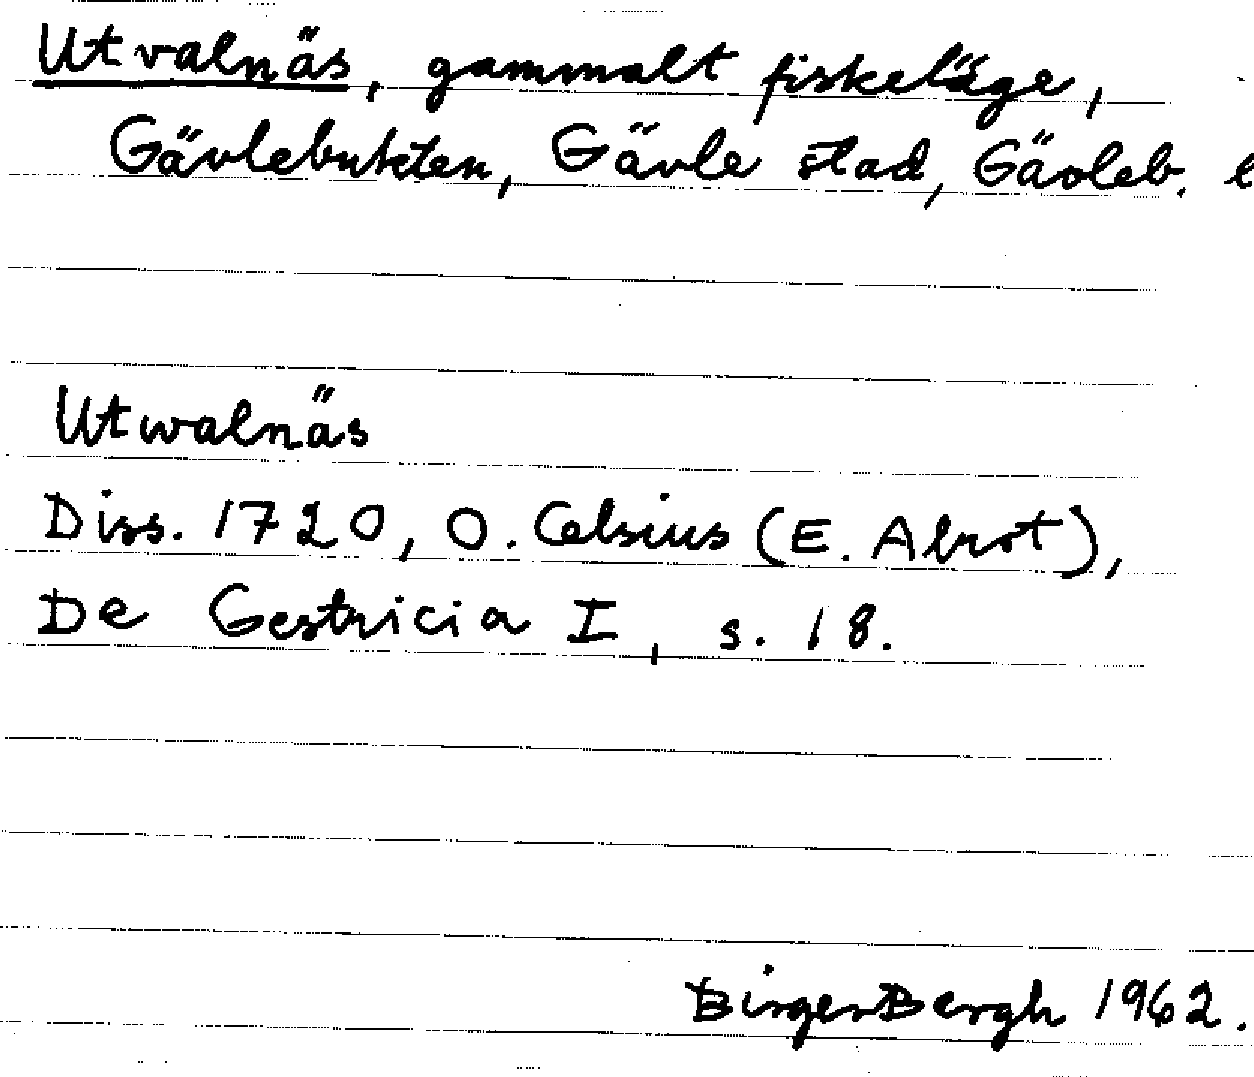 Utvalnäs, gammalt fiskeläge,
Gävlebukten, Gävle stad, Gävleb. l
Utwalnäs
Diss. 1720, O. Celsius (E. Abrot),
De Gestricia I, s. 18.
Birger Bergh 1962.